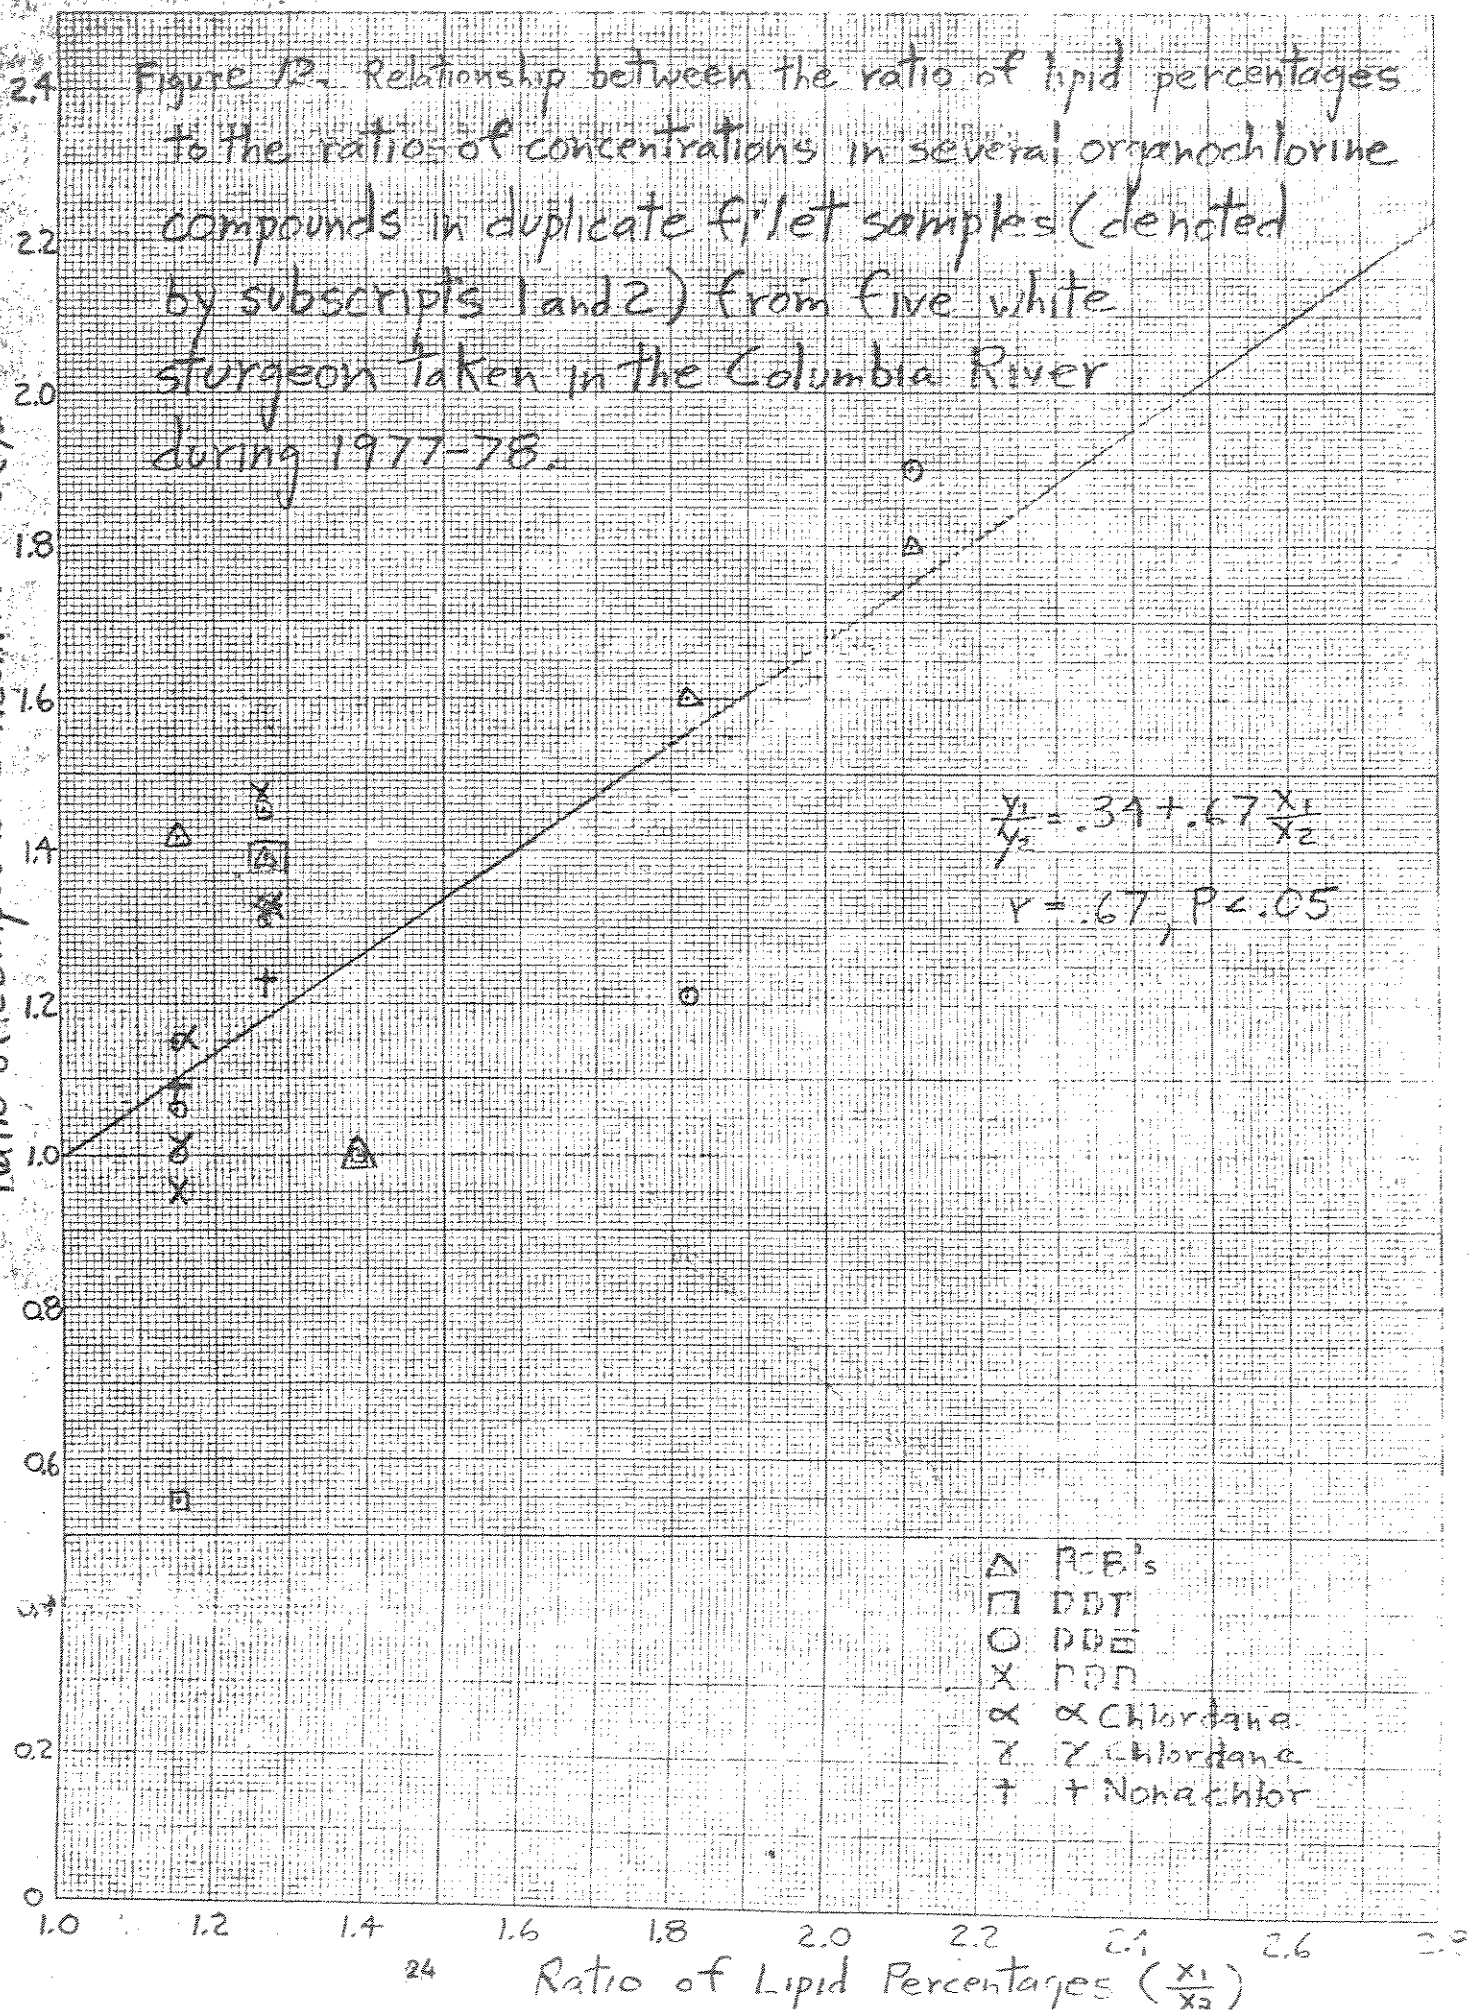 Figure 12. Relationship between the ratio of lipid percentages
to the ratio of concentrations in several organochlorine
compounds in duplicate fillet samples (denoted
by subscripts 1 and 2) from five white
sturgeon taken in the Columbia River
during 1977-78.
2.4
2.2
2.0
1.8
1.6
1.4
1.2
1.0
0.8
0.6
0.4
0.2
0
y₁/y₂ = .34 + .67 x₁/x₂
r = .67, P < .05
△ PCB's
□ DDT
○ DDE
X DDD
α α Chlordane
γ γ Chlordane
+ + Nonachlor
1.0 1.2 1.4 1.6 1.8 2.0 2.2 2.4 2.6 2.8
24
Ratio of Lipid Percentages (x₁/x₂)